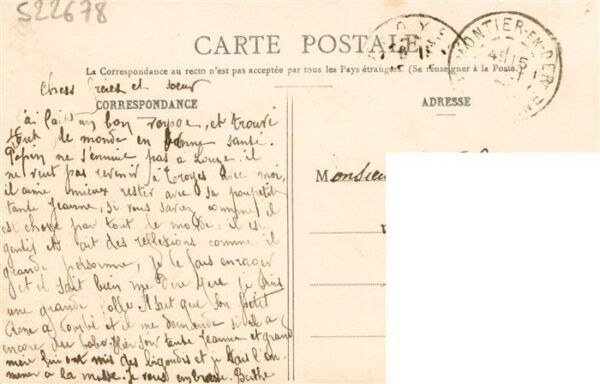 522678
CARTE POSTALE
La Correspondance au recto n'est pas acceptée par tous les Pays étrangers. (Se renseigner à la Poste.)
MONTIER-EN-DER
chers frères et soeur
CORRESPONDANCE
ADRESSE
ai fait un bon voyage, et trouvé
tout le monde en bonne santé.
ne s'ennuie pas a il
ne veut pas revenir à Troyes avec moi,
il aime mieux rester avec sa petite
tante Jeanne, si vous savez comme il
est choyé par tout le monde, il est
gentil et ait des reflexions comme une
grande personne, je le fais enrager
et il sait bien me dire que je suis
une grande folle. Il sait que son petit
René a tombé et il me demande si il a
encore des bobos. Hier soir tante Jeanne et grand
mère lui ont mis des bigoudis et je vais l'em-
mener a la messe. Je vous embrasse. Berthe
Monsieur